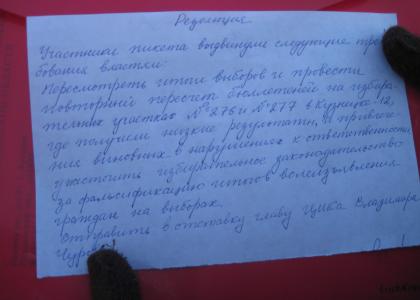 Резолюция
Участники пикета выдвинули следующие тре-
бования власти:
Пересмотреть итоги выборов и провести
повторный пересчет бюллетеней на избира-
тельных участках №276 и №277 в Кузнецке-12,
где получили низкие результаты, и привлече-
ния виновных в нарушениях к ответственности
ужесточить избирательное законодательство
за фальсификацию итогов волеизъявления
граждан на выборах.
Отправить в отставку главу Цика Владимира
Чурова